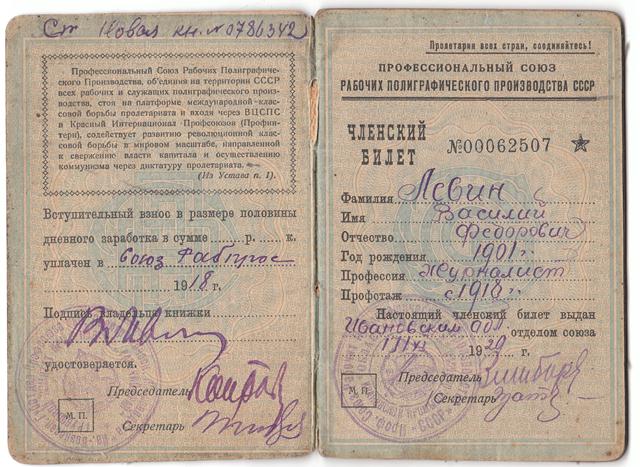 Ст Новая кн. № 0786342
Профессиональный Союз Рабочих Полиграфиче-
ского Производства, об'единяя на территории СССР
всех рабочих и служащих полиграфического произ-
водства, стоя на платформе международной-клас-
совой борьбы пролетариата и входя через ВЦСПС
в Красный Интернационал Профсоюзов (Профин-
терн), содействует развитию революционной клас-
совой борьбы в мировом масштабе, направленной
к свержению власти капитала и осуществлению
коммунизма через диктатуру пролетариата.
(Из Устава п. 1).
Вступительный взнос в размере половины
дневного заработка в сумме р. к.
уплачен в Союз Рабпрос
1918 г.
Подпись владельца книжки
удостоверяется.
Председатель
М. П.
Секретарь
Пролетарии всех стран, соединяйтесь!
ПРОФЕССИОНАЛЬНЫЙ СОЮЗ
РАБОЧИХ ПОЛИГРАФИЧЕСКОГО ПРОИЗВОДСТВА СССР
ЧЛЕНСКИЙ
БИЛЕТ №00062507
Фамилия Левин
Имя Василий
Отчество Федорович
Год рождения 1901 г.
Профессия Журналист
Профстаж с 1918 г.
Настоящий членский билет выдан
Ивановским отделом союза
1929 г.
Председатель
М. П.
Секретарь